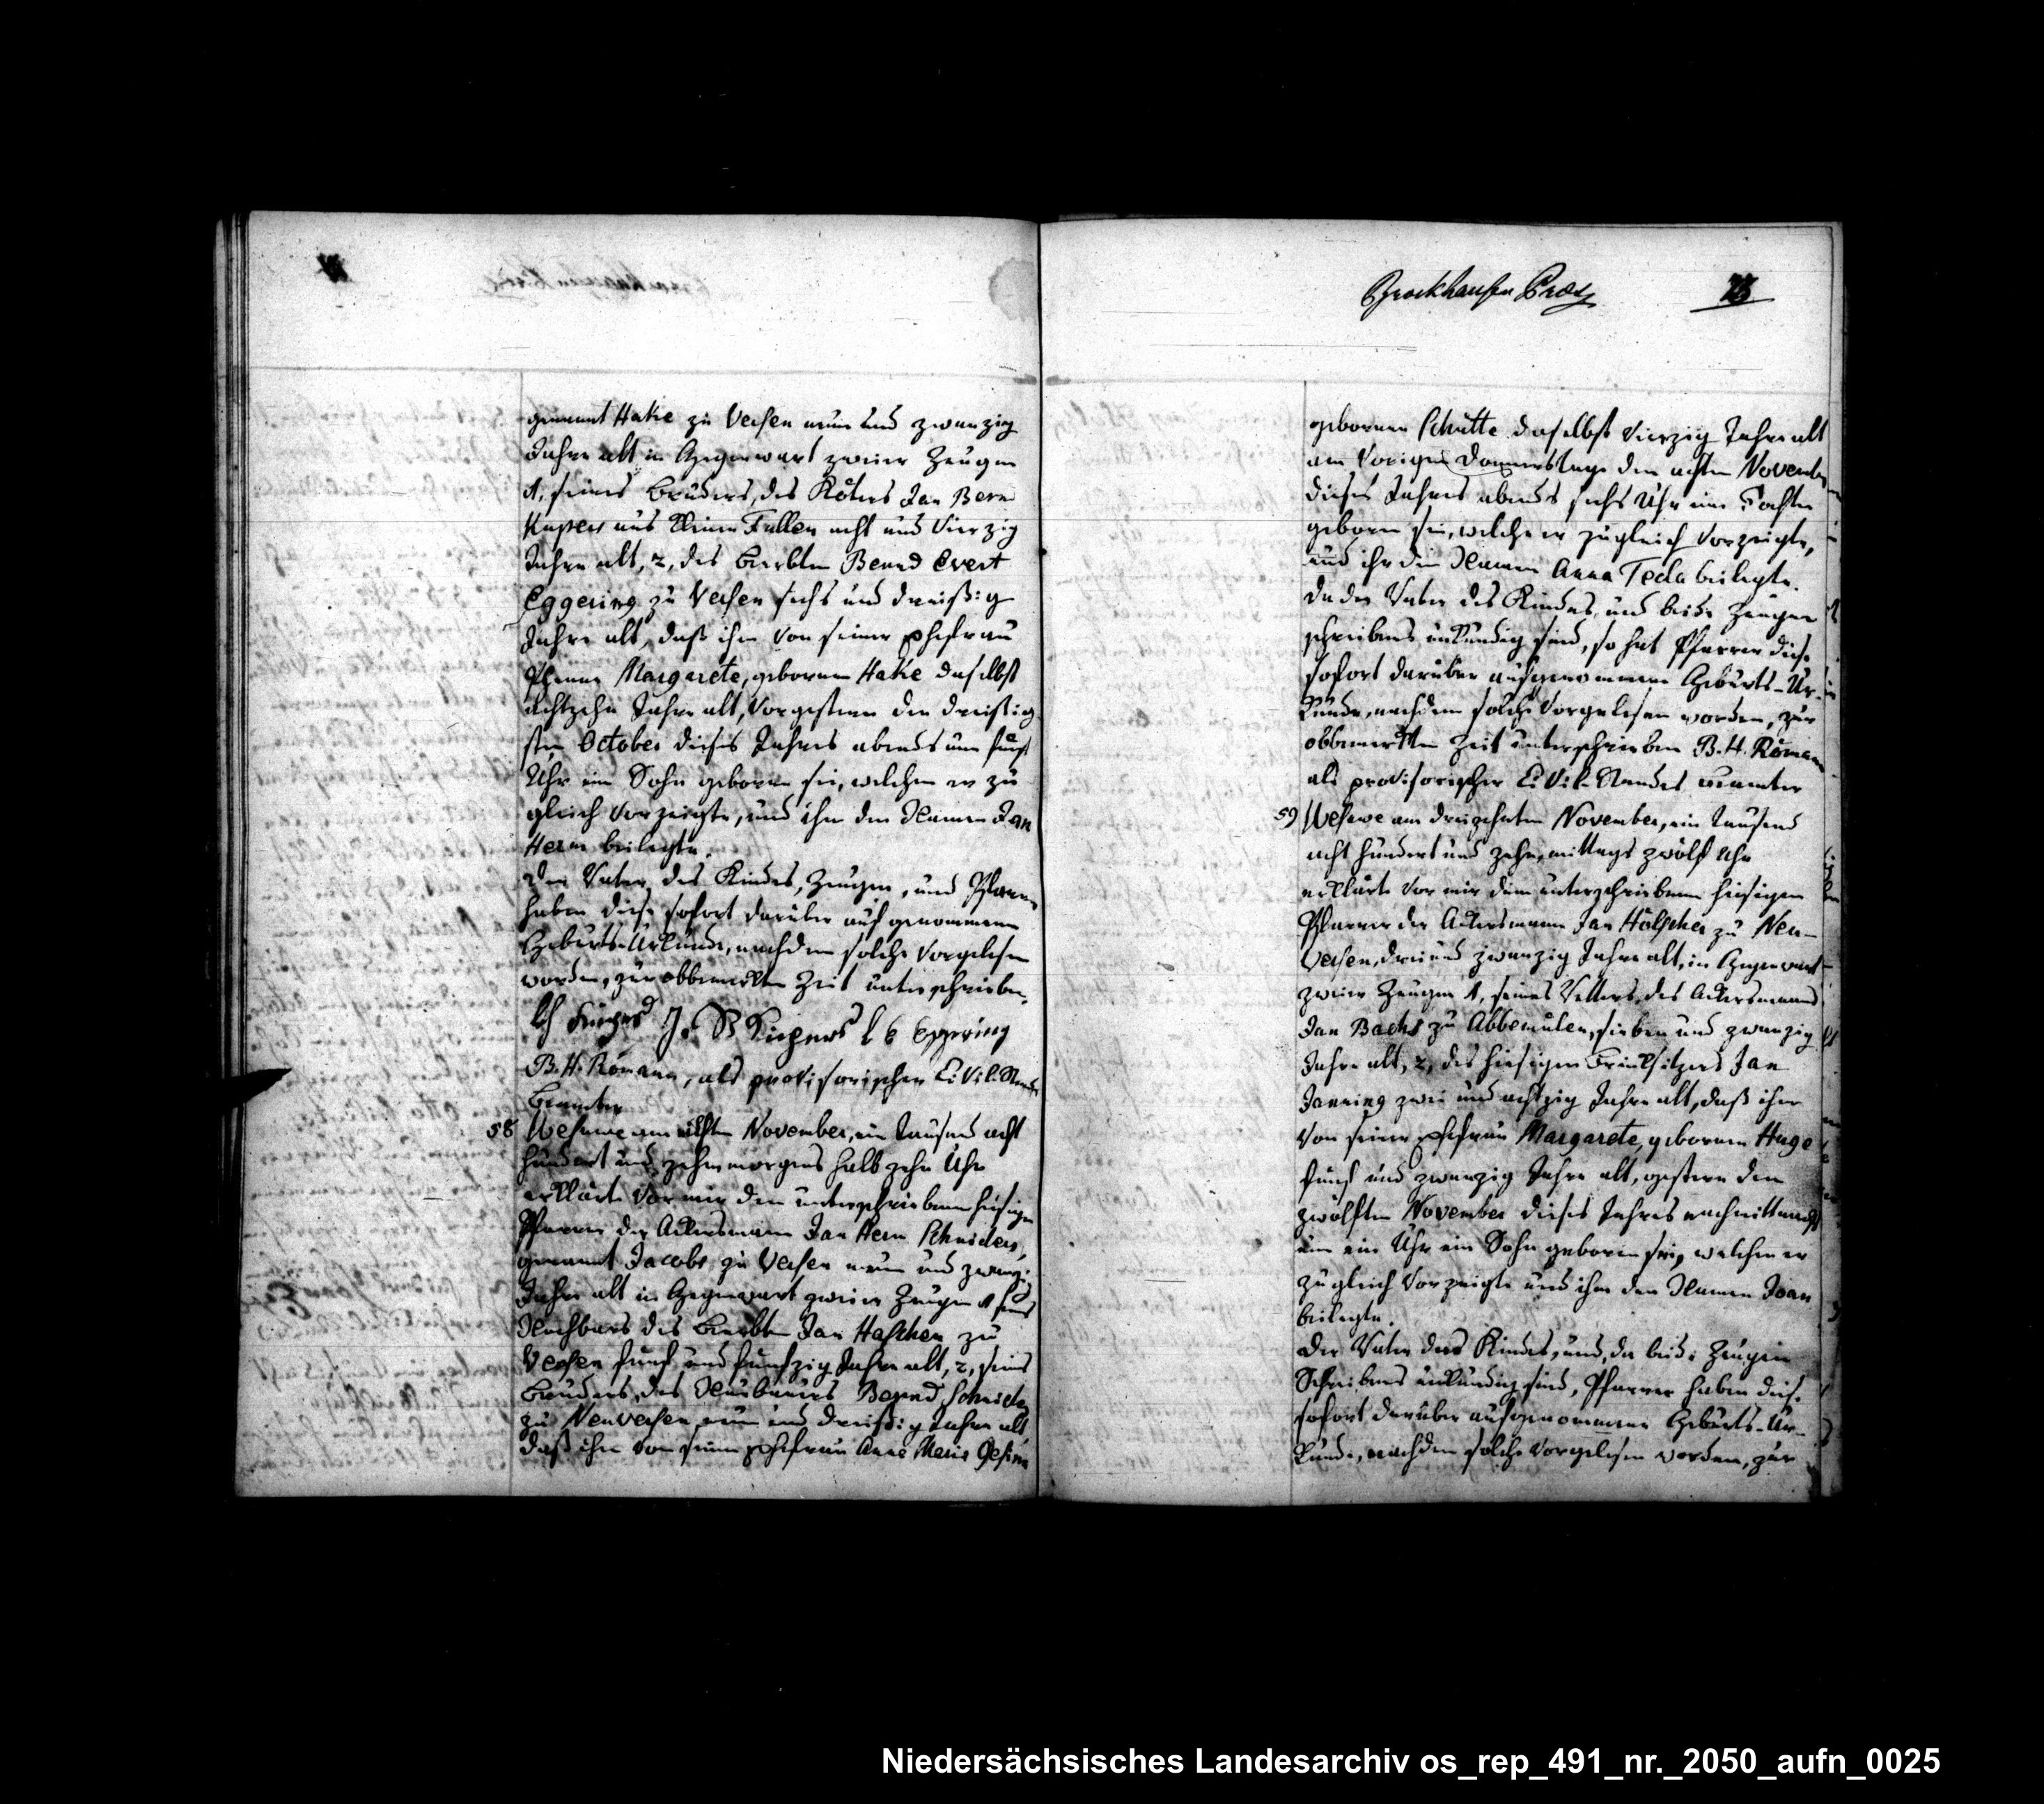 genannt Hake zu Versen neun und zwanzig
Jahre alt in Gegenwart zweier Zeugen
1, seines Bruders, des Köters Jan Bern
Kupers aus Kleine Fullen acht und vierzig
Jahre alt, 2, des Beerbten Bernd Evert
Eggering zu Versen sechs und dreißig
Jahre alt, daß ihm von seiner Ehefrau
Margarete, gebornen Hake daselbst
achtzehn Jahre alt, vorgestern den dreißig
sten October dieses Jahres abends um fünf
Uhr ein Sohn geboren sei, welchen er zu
gleich vorzeigte, und ihm den Namen Jan
Herm beilegte.
Der Vater des Kindes, Zeugen, und Pfarrer
haben diese sofort darüber aufgenommene
Geburts-Urkunde, nachdem solche vorgelesen
worden, zur obbemerkten Zeit unterschrieben.
J. B Küpers
B. H. Römann, als provisorischer Civil-Stands
Beamter
58 Wesuwe am eilften November, ein tausend acht
hundert und zehn morgens halb zehn Uhr
erklärte vor mir dem unterschriebenen hiesigen
Pfarrer der Ackersmann Jan Herm Schniders,
genannt Jacobs zu Versen neun und zwanzig
Jahre alt in Gegenwart zweier Zeugen 1 seines
Nachbars des Beerbten Jan Haschen zu
Versen fünf und funfzig Jahre alt, 2, seines
Bruders, des Neubauers Bernd Schniders
zu Neuversen neun und dreißig Jahre alt
daß ihm von seiner Ehefrau Anna Maria Gesina
Brockhausen Präs
23
gebornen Schütte daselbst vierzig Jahre alt
am vorigen Donnerstage den achten November
dieses Jahres abends sechs Uhr eine Tochter
geboren sei, welche er zugleich vorzeigte,
und ihr den Namen Anna Tecla beilegte.
Da der Vater des Kindes und beide Zeugen
schreibens unkundig sind, so hat Pfarrer diese
sofort darüber aufgenommene Geburts-Ur-
kunde, nachdem solche vorgelesen worden, zur
obbemerkten Zeit unterschrieben B. H. Römann
als provisorischer Civil-Standes Beamter
59 Wesuwe am dreizehnten November, ein tausend
acht hundert und zehn, mittags zwölf Uhr
erklärte vor mir dem unterschriebenen hiesigen
Pfarrer der Ackersmann Jan Hölscher zu Neu-
Versen, drei und zwanzig Jahre alt, in Gegenwart
zweier Zeugen 1, seines Vetters, des Ackersmanns
Jan Backs zu Abbemülen, sieben und zwanzig
Jahre alt, 2, des hiesigen Brinksitzers Jan
Janning zwei und achtzig Jahre alt, daß ihm
von seiner Ehefrau Margarete, gebornen Huge
fünf und zwanzig Jahre alt, gestern den
zwölften November dieses Jahres nachmittags
um ein Uhr ein Sohn geboren sei, welchen er
zugleich vorzeigte und ihm den Namen Joan
beilegte.
Der Vater des Kindes, und, da beide Zeugen
Schreibens unkundig sind, Pfarrer haben diese
sofort darüber aufgenommene Geburts-Ur-
kunde, nachdem solche vorgelesen worden, zur
Niedersächsisches Landesarchiv os_rep_491_nr._2050_aufn_0025